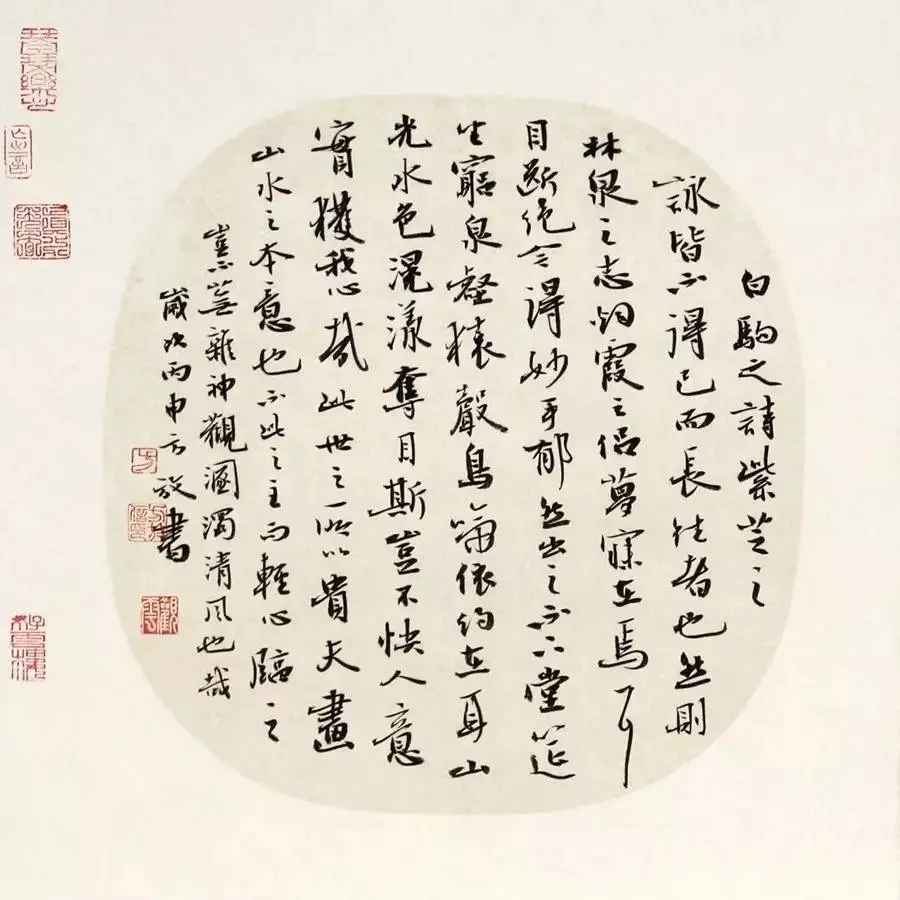 白駒之詩紫芝之
詠皆不得已而長往者也然則
林泉之志烟霞之侣夢寐在焉耳
目斷绝今得妙手郁然出之不下堂筵
坐窮泉壑猿聲鳥啼依約在耳山
光水色滉漾奪目斯豈不快人意
實獲我心哉此世之所以貴夫畫
山水之本意也不此之主而輕心臨之
豈不蕪雜神觀溷濁清風也哉
歲次丙申方放書